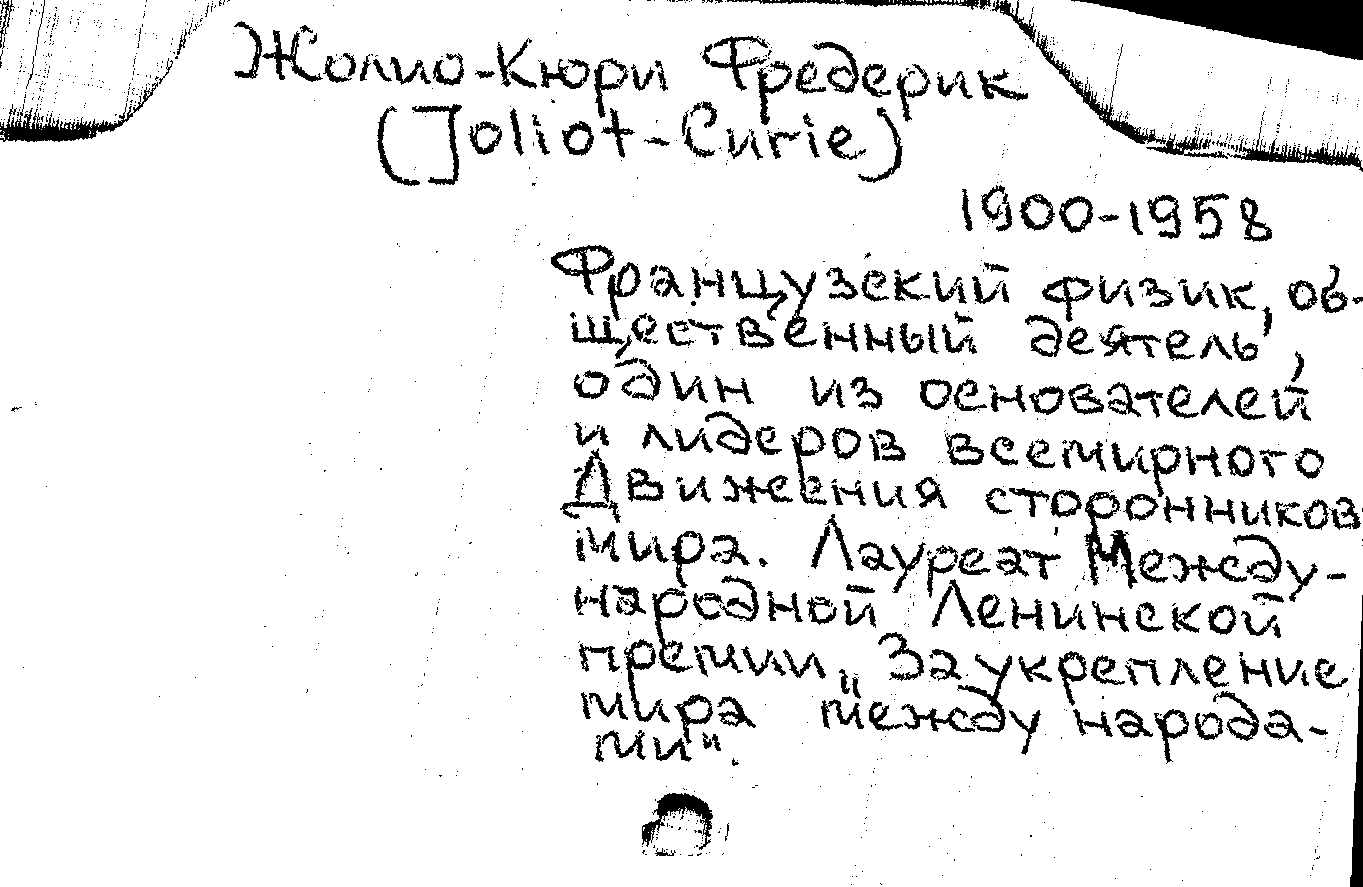 Жолио-Кюри Фредерик
(Joliot-Curie)
1900-1958
Французский физик, об-
щественный деятель,
один из основателей
и лидеров всемирного
Движения сторонников
мира. Лауреат Между-
народной Ленинской
премии „За укрепление
мира между народа-
ми“.